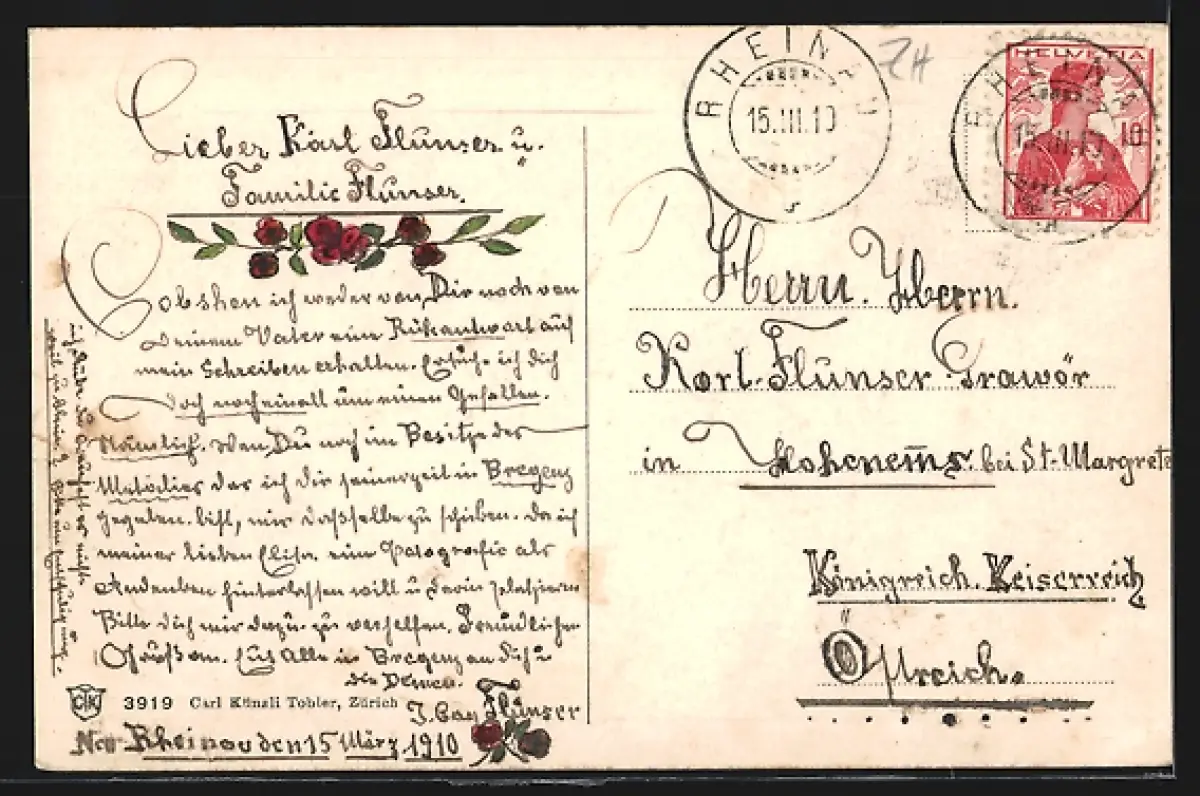 Lieber Karl Flunser u.
Familie Flunser.
Obshon ich weder von Dir noch von
Deinem Vater eine Rükantwort auf
mein Schreiben erhalten. Ersuche ich dich
doch nocheinall um einen Gefallen.
Nämlich. Wen Du noch im Besitze der
Melodie das ich dir seinerzeit in Bregenz
gegeben. bist, mir dasselbe zu schiken. da ich
meiner lieben eine Potografie als
Andenken hinterlassen will u darin
Bitte dich mir dazu zu verhelfen. Freundliche
an Alle in Bregenz an
J. Flunser
3919 Carl Künzli Tobler, Zürich
CTK
Rheinau den 15 März 1910
ZH
RHEINAU
15.III.10
HELVETIA
10
RHEINAU
15.III.10
Herrn. Herrn.
Karl. Flunser Grawör
in Hohenems. bei St. Margrete
Königreich. Keiserreich
Östreich.